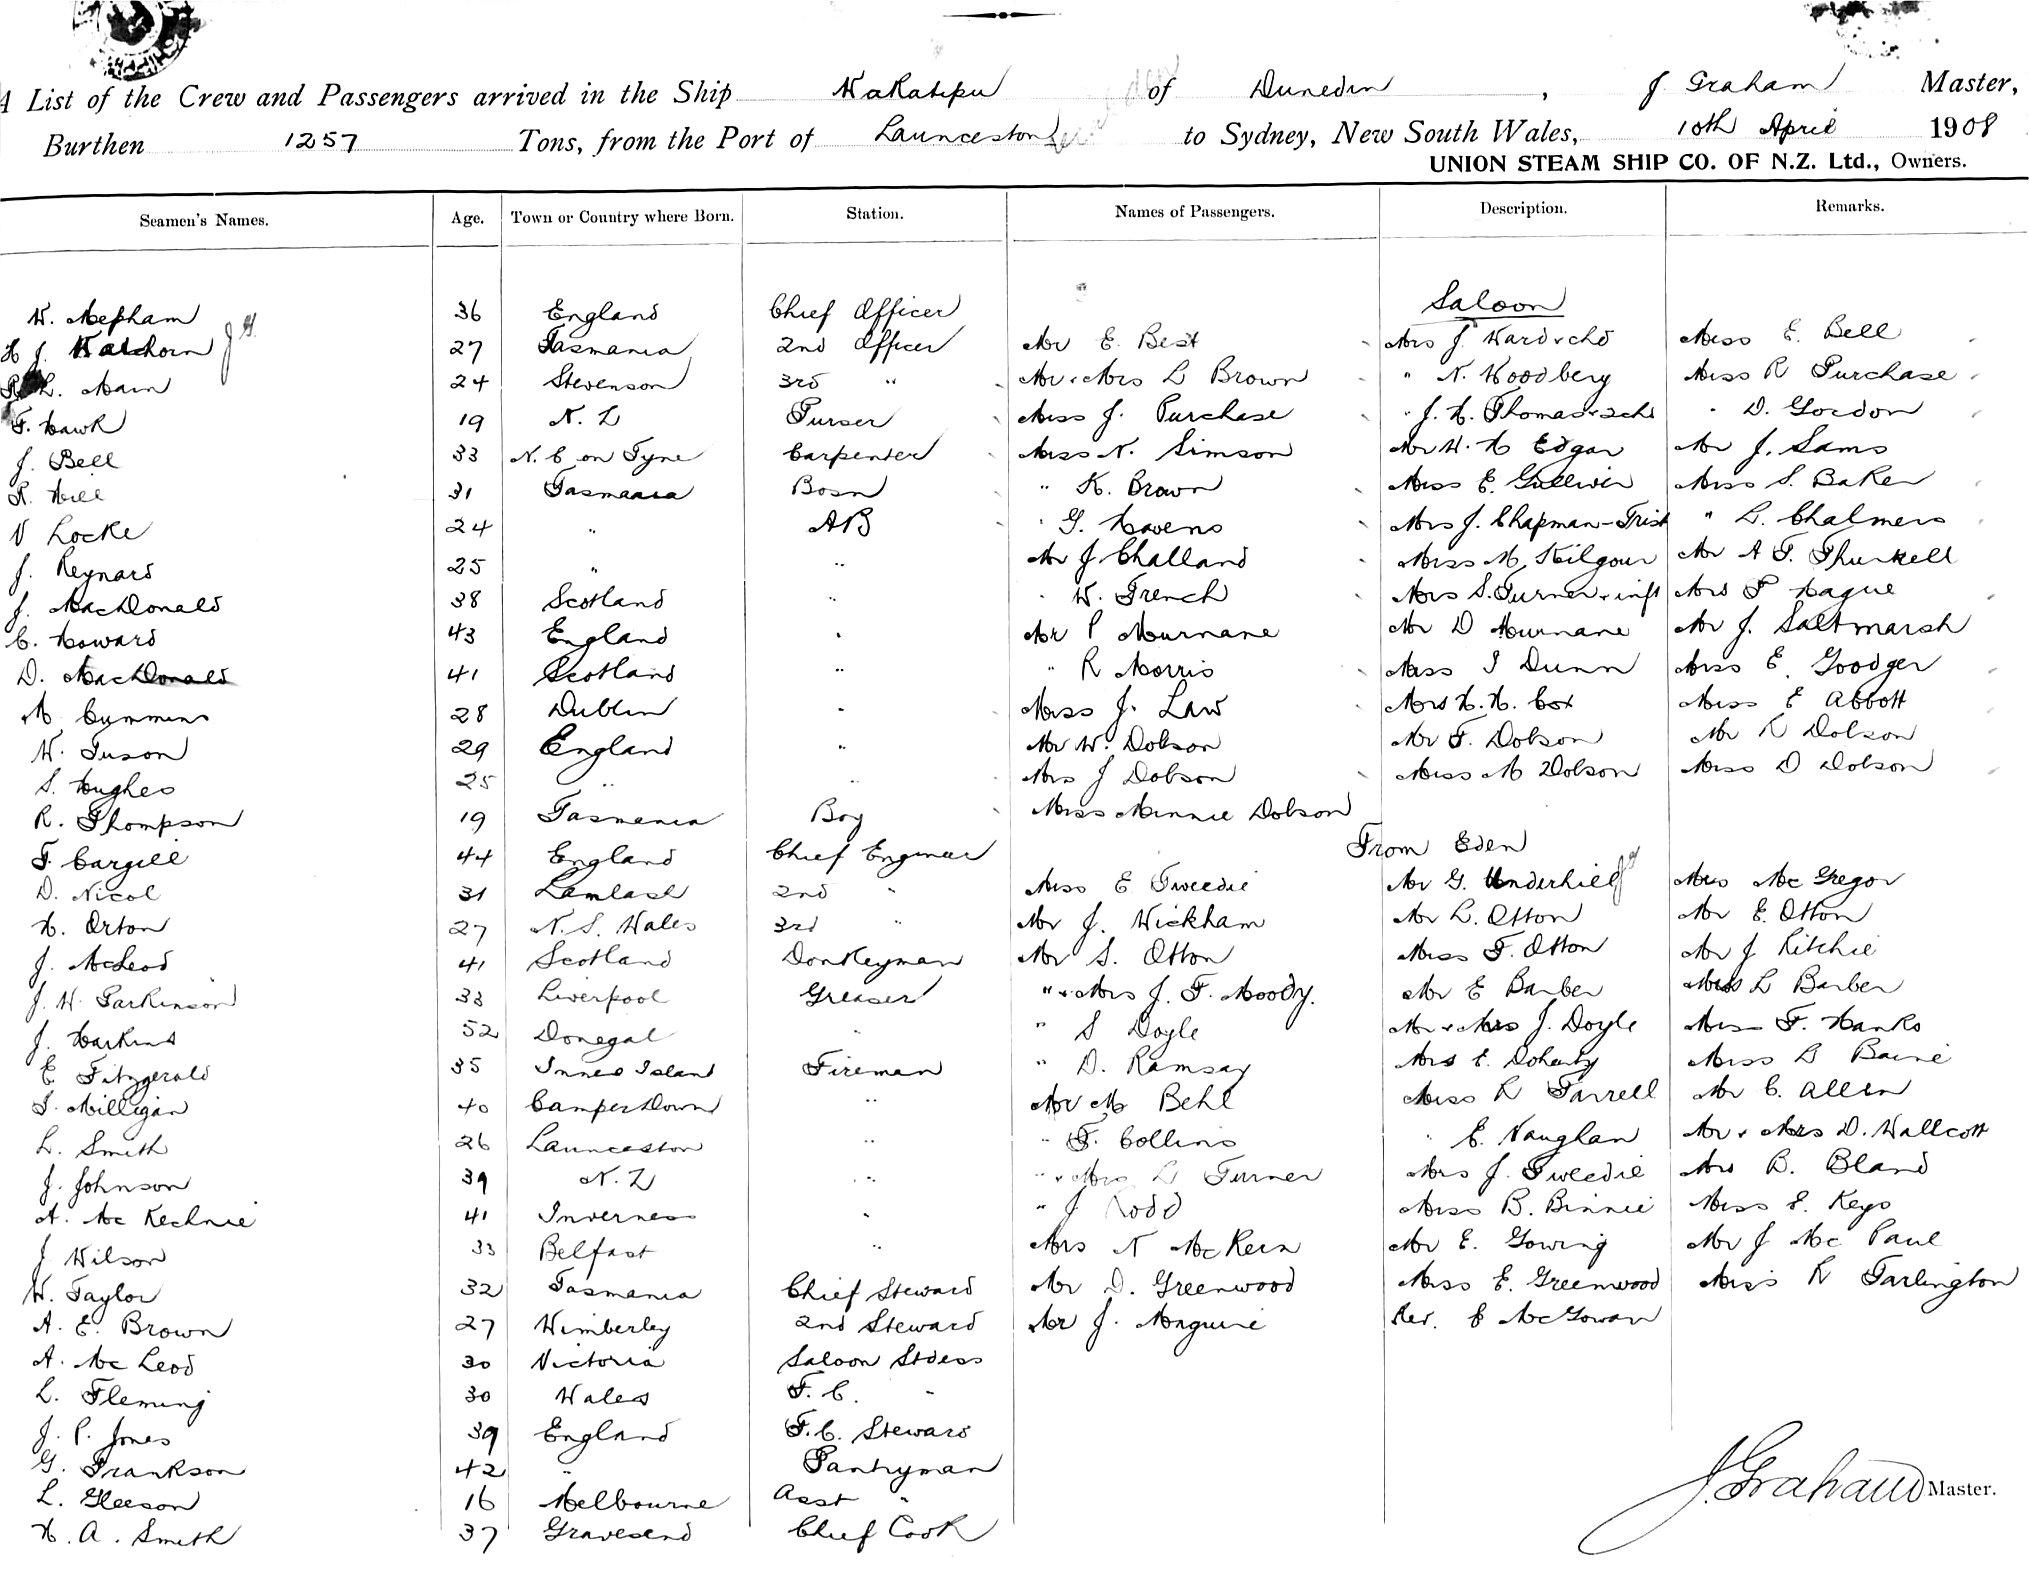 A List of the Crew and Passengers arrived in the Ship Wakatipu of Dunedin, J Graham Master,
Burthen 1257 Tons, from the Port of Launceston to Sydney, New South Wales, 10th April 1908
UNION STEAM SHIP CO. OF N.Z. Ltd., Owners.
Seamen's Names. Age. Town or Country where Born. Station. Names of Passengers. Description. Remarks.
Saloon
W. Mepham 36 England Chief Officer
H J Watchorn J G. 27 Tasmania 2nd Officer Mr E. Best Mrs J. Ward & chd Miss E. Bell
R L. Main 24 Stevenson 3rd " Mr & Mrs L Brown " N. Woodbery Miss R Purchase
F. Hawk 19 N. Z Purser Miss J. Purchase " J. H. Thomas & 2chd " D. Gordon
J. Bell 33 N. C on Tyne Carpenter Miss N. Simson Mr W. H Edgar Mr J. Sams
R. Hill 31 Tasmania Bosn " K. Brown Miss E. Gulliver Miss S. Baker
V Locke 24 " AB " G. Havens Mrs J. Chapman-Trist " L. Chalmers
J. Reynard 25 " " Mr J Challand Miss M. Kilgour Mr A F. Thurkell
J. MacDonald 38 Scotland " " W. French Mrs S. Turner & inft Mrs F Hague
C. Howard 43 England " Mr P Murnane Mr D Murnane Mr J. Saltmarsh
D. MacDonald 41 Scotland " " R Morris Miss I Dunn Miss E. Goodger
M Cummins 28 Dublin " Miss J. Law Mrs H. H. Cox Miss E Abbott
W. Tuson 29 England " Mr W. Dobson Mr F. Dobson Mr R Dobson
S. Hughes 25 " " Mrs J Dobson Miss M Dobson Miss D Dobson
R. Thompson 19 Tasmania Boy Miss Minnie Dobson
From Eden
F. Cargill 44 England Chief Engineer
D. Nicol 31 Lamlash 2nd " Miss E Tweedie Mr G. Underhill JG Mrs McGregor
H. Orton 27 N. S. Wales 3rd " Mr J. Wickham Mr L. Otton Mr E. Otton
J. McLeod 41 Scotland Donkeyman Mr S. Otton Miss F. Otton Mr J Ritchie
J. W. Parkinson 33 Liverpool Greaser " & Mrs J. F. Moody. Mr E Barber Miss L Barber
J. Harkins 52 Donegal " " S Doyle Mr & Mrs J. Doyle Miss F. Hanks
E. Fitzgerald 35 Innes Island Fireman " D. Ramsay Mrs E. Doherty Miss B
J. Milligan 40 CamperDown " Mr M Behl Miss R Farrell Mr C. Allen
L. Smith 26 Launceston " " F. Collins " E. Vaughan Mr & Mrs D. Wallcott
J. Johnson 39 N. Z " " & Mrs L Turner Mrs J. Tweedie Mrs B. Bland
A. McKechnie 41 Inverness " " J Rodd Miss B. Binnie Miss E. Keys
J Wilson 33 Belfast " Mrs N McKern Mr E. Gowing Mr J McPaul
W. Taylor 32 Tasmania Chief Steward Mr D. Greenwood Miss E. Greenwood Miss R Tarlington
A. E. Brown 27 Wimberley 2nd Steward Mr J. Maguire Rev. E McGowan
A. McLeod 30 Victoria Saloon Stdess
L. Fleming 30 Wales F. C. "
J. P. Jones 39 England F. C. Steward
G. Frankson 42 " Pantryman
L. Gleeson 16 Melbourne Asst "
H. A. Smith 37 Gravesend Chief Cook
J. Graham Master.